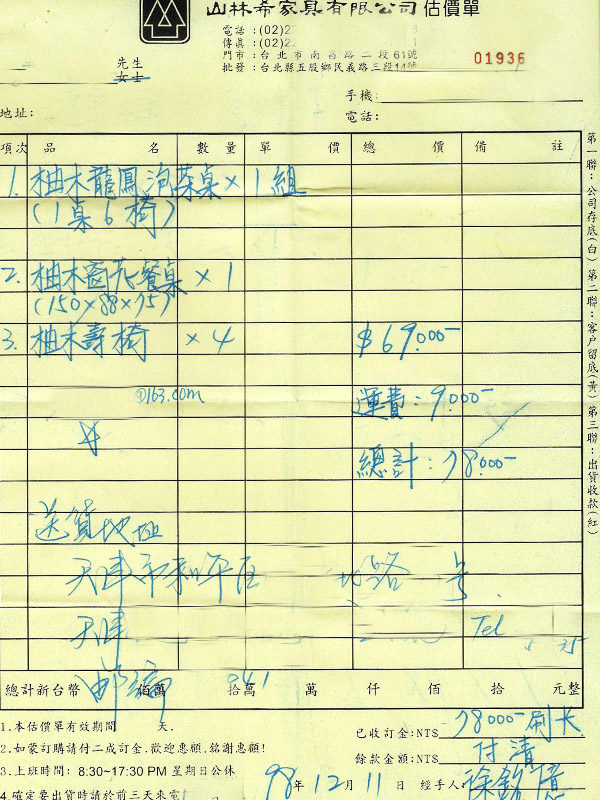 山林希家具有限公司估價單
電話:(02)2
傳真:(02)2
門市:台北市南昌路二段61號
批發:台北縣五股鄉民義路三段14號
01936
先生
女士
手機:
地址:
電話:
項次 品名 數量 單價 總價 備註
1. 柚木龍鳳泡茶桌×1組
(1桌6椅)
2. 柚木窗花餐桌×1
(150×88×75)
3. 柚木壽椅 ×4 $69000-
@163.com 運費:9000-
總計:78000-
送貨地址
天津市和平区 北路 号
天津 Tel
邮编 041
總計新台幣 佰萬 拾萬 萬 仟 佰 拾 元整
1.本估價單有效期間 天.
已收訂金:NT$ 78000-刷卡
2.如蒙訂購請付二成訂金.歡迎惠顧,銘謝惠顧!
餘款金額:NT$ 付清
3.上班時間:8:30~17:30 PM 星期日公休
98年12月11日 經手人:徐
4.確定要出貨時請於前三天來電
第一聯:公司存底(白) 第二聯:客戶留底(黃) 第三聯:出貨收款(紅)